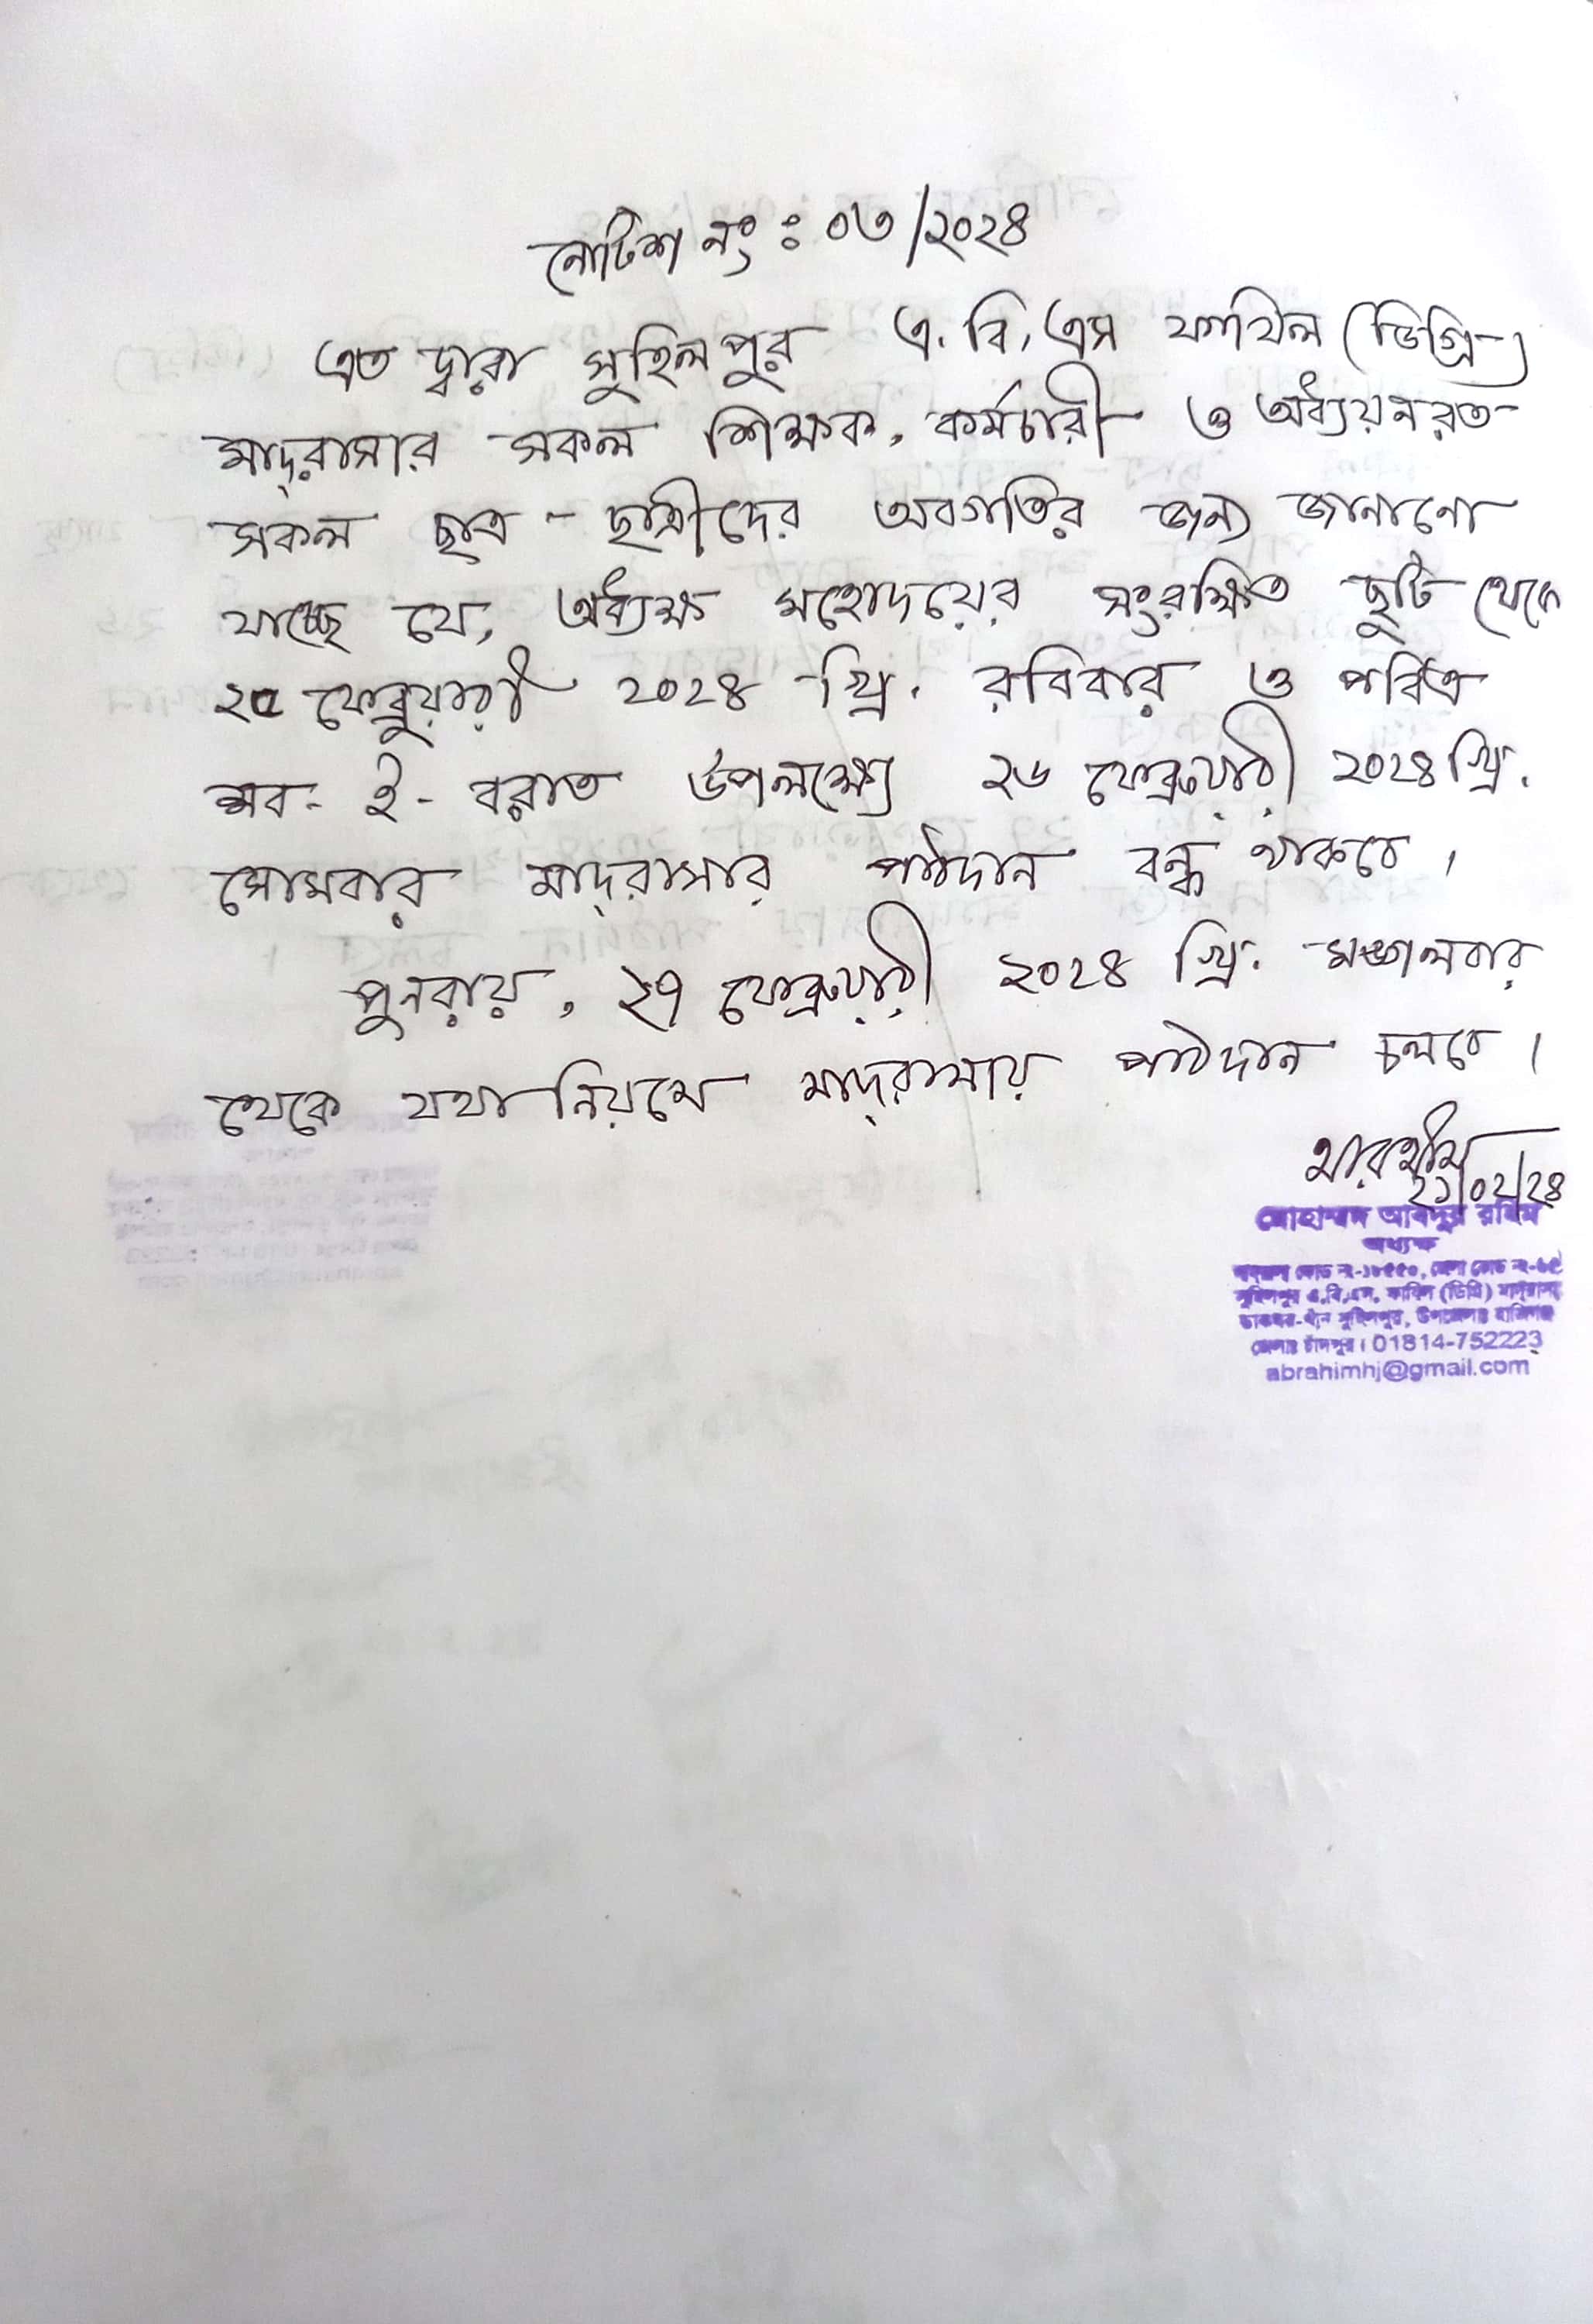 নোটিশ নং : ০৩/২০২৪
এত দ্বারা সুহিলপুর এ.বি.এস ফাযিল (ডিগ্রি)
মাদ্‌রাসার সকল শিক্ষক, কর্মচারী ও অধ্যয়নরত
সকল ছাত্র - ছাত্রীদের অবগতির জন্য জানানো
যাচ্ছে যে, অধ্যক্ষ মহোদয়ের সংরক্ষিত ছুটি থেকে
২৫ ফেব্রুয়ারী ২০২৪ খ্রি. রবিবার ও পবিত্র
শব-ই-বরাত উপলক্ষ্যে ২৬ ফেব্রুয়ারী ২০২৪ খ্রি.
সোমবার মাদ্‌রাসার পাঠদান বন্ধ থাকবে ।
পুনরায়, ২৭ ফেব্রুয়ারী ২০২৪ খ্রি. মঙ্গলবার
থেকে যথা নিয়মে মাদ্‌রাসায় পাঠদান চলবে ।
২১/০২/২৪
মোহাম্মদ আবদুর রহিম
অধ্যক্ষ
সুহিলপুর এ,বি,এস, ফাযিল (ডিগ্রি) মাদ্‌রাসা
ডাকঘর- সুহিলপুর, উপজেলাঃ হাজিগঞ্জ
জেলাঃ চাঁদপুর। 01814-752223
abrahimhj@gmail.com